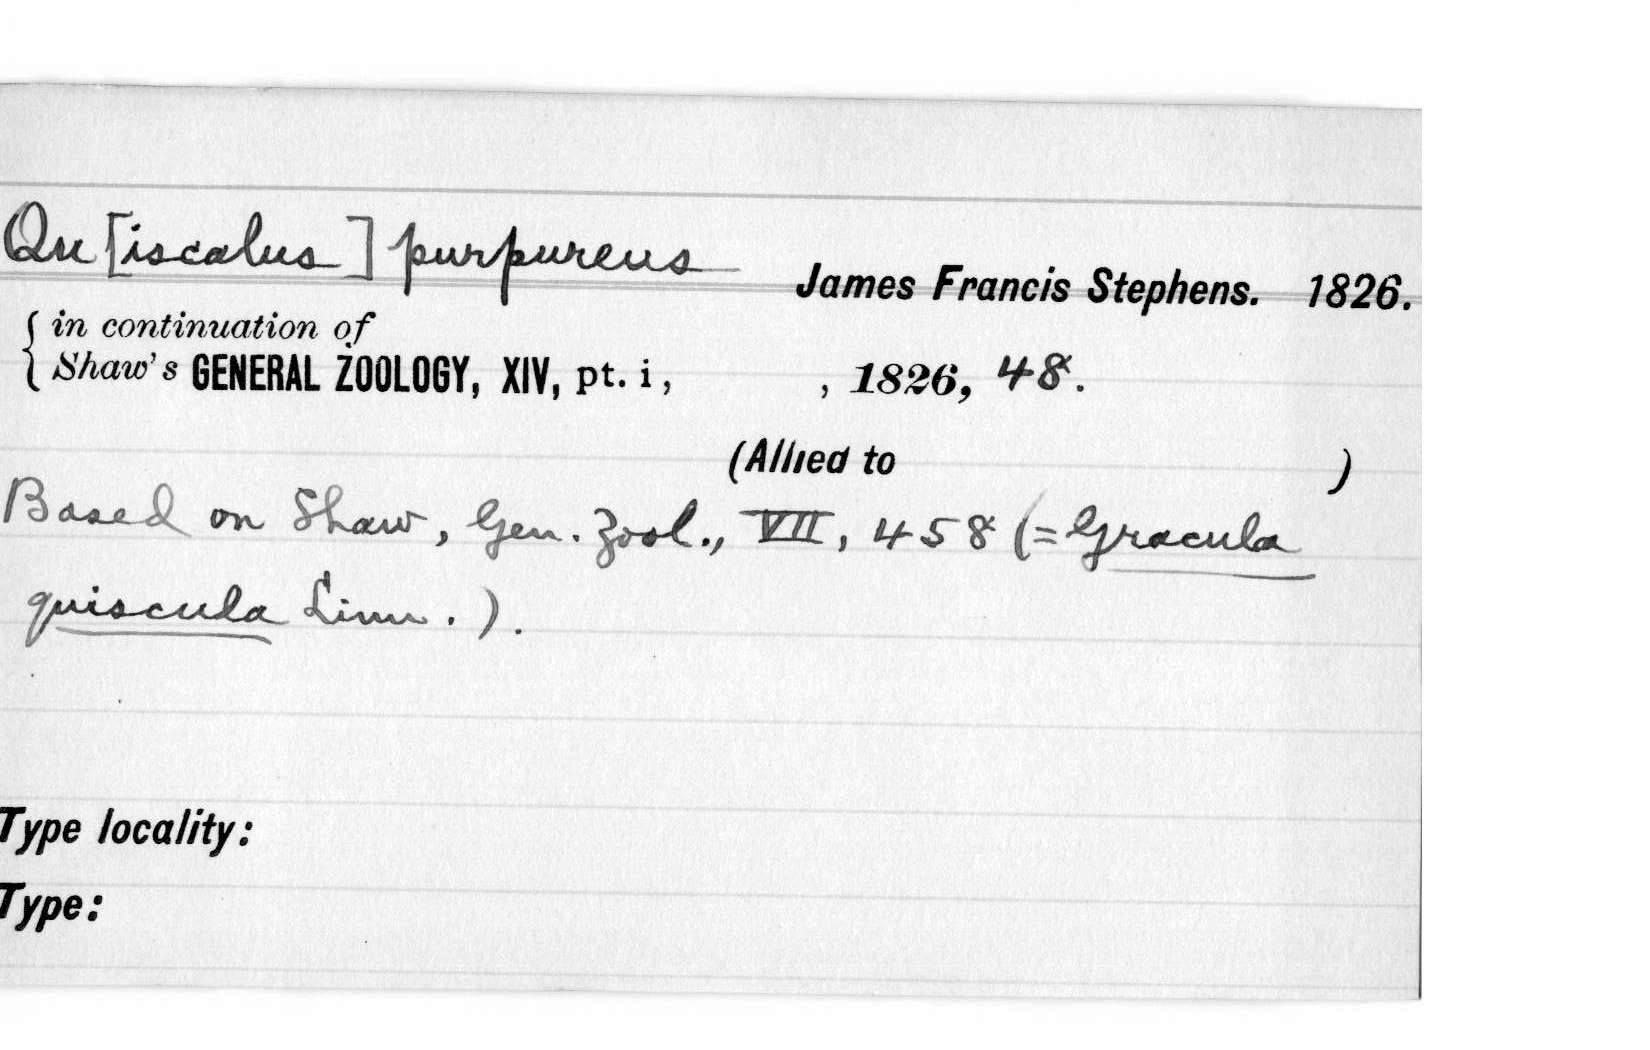 Qu[iscalus] purpureus James Francis Stephens. 1826.
{ in continuation of
Shaw's GENERAL ZOOLOGY, XIV, pt. i, , 1826, 48.
(Allied to )
Based on Shaw, Gen. Zool., VII, 458 (= Gracula
quiscula Linn.).
Type locality:
Type: